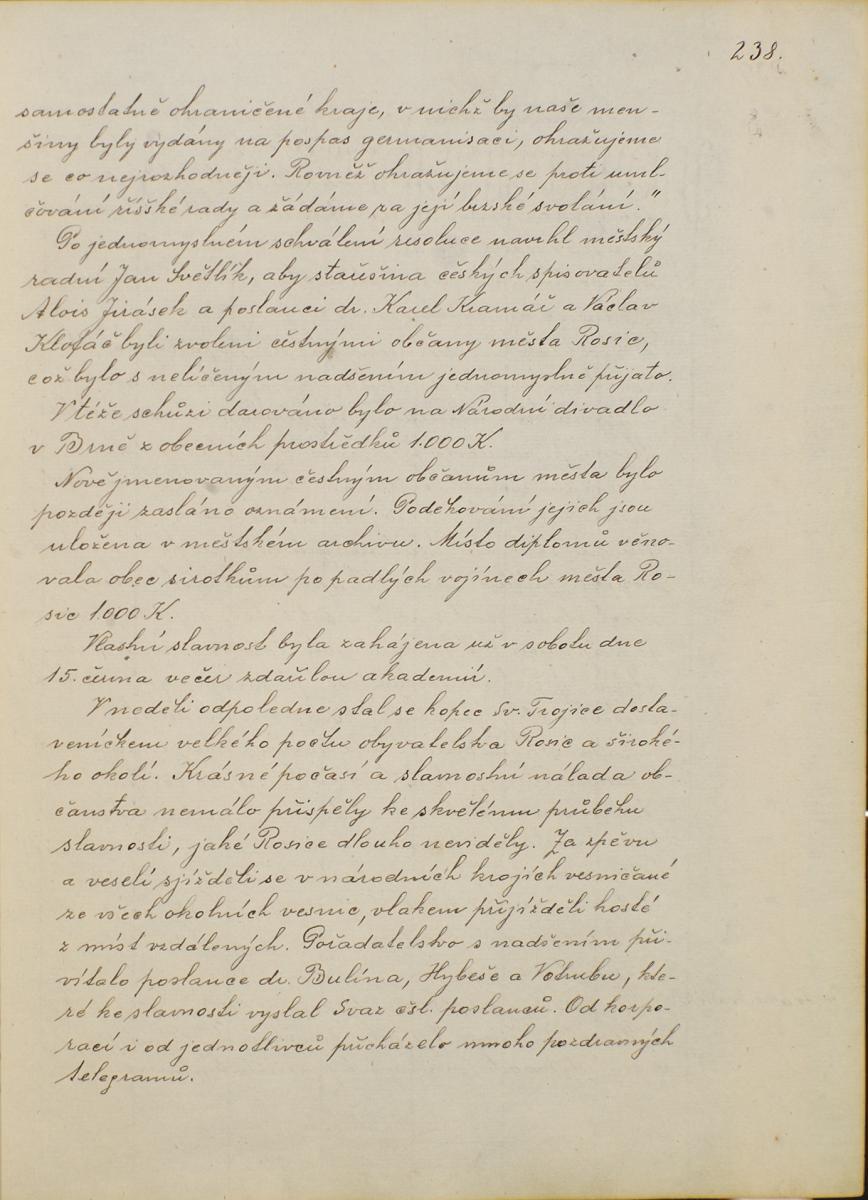 238.
samostatně ohraničené kraje, v nichž by naše men-
šiny byly vydány na pospas germanisaci, ohražujeme
se co nejrozhodněji. Rovněž ohražujeme se proti uml-
čování říšské rady a žádáme za její brzské svolání."
Po jednomyslném schválení resoluce navrhl městský
radní Jan Světlík, aby stařešina českých spisovatelů
Alois Jirásek a poslanci dr. Karel Kramář a Václav
Klofáč byli zvoleni čestnými občany města Rosic,
což bylo s nelíčeným nadšením jednomyslně přijato.
V téže schůzi darováno bylo na Národní divadlo
v Brně z obecních prostředků 1.000 K.
Nově jmenovaným čestným občanům města bylo
později zasláno oznámení. Poděkování jejich jsou
uložena v městském archivu. Místo diplomů věno-
vala obec sirotkům po padlých vojínech města Ro-
sic 1.000 K.
Vlastní slavnost byla zahájena už v sobotu dne
15. června večer zdařilou akademií.
V neděli odpoledne stal se kopec Sv. Trojice dosta-
veníčkem velkého počtu obyvatelstva Rosic a široké-
ho okolí. Krásné počasí a slavnostní nálada ob-
čanstva nemálo přispěly ke skvělému průběhu
slavnosti, jaké Rosice dlouho neviděly. Za zpěvu
a veselí sjížděli se v národních krojích vesničané
ze všech okolních vesnic, vlakem přijížděli hosté
z míst vzdálených. Pořadatelstvo s nadšením při-
vítalo poslance dr. Bulína, Hybeše a Votrubu, kte-
ré ke slavnosti vyslal Svaz čsl. poslanců. Od korpo-
rací i od jednotlivců přicházelo mnoho pozdravných
telegramů.